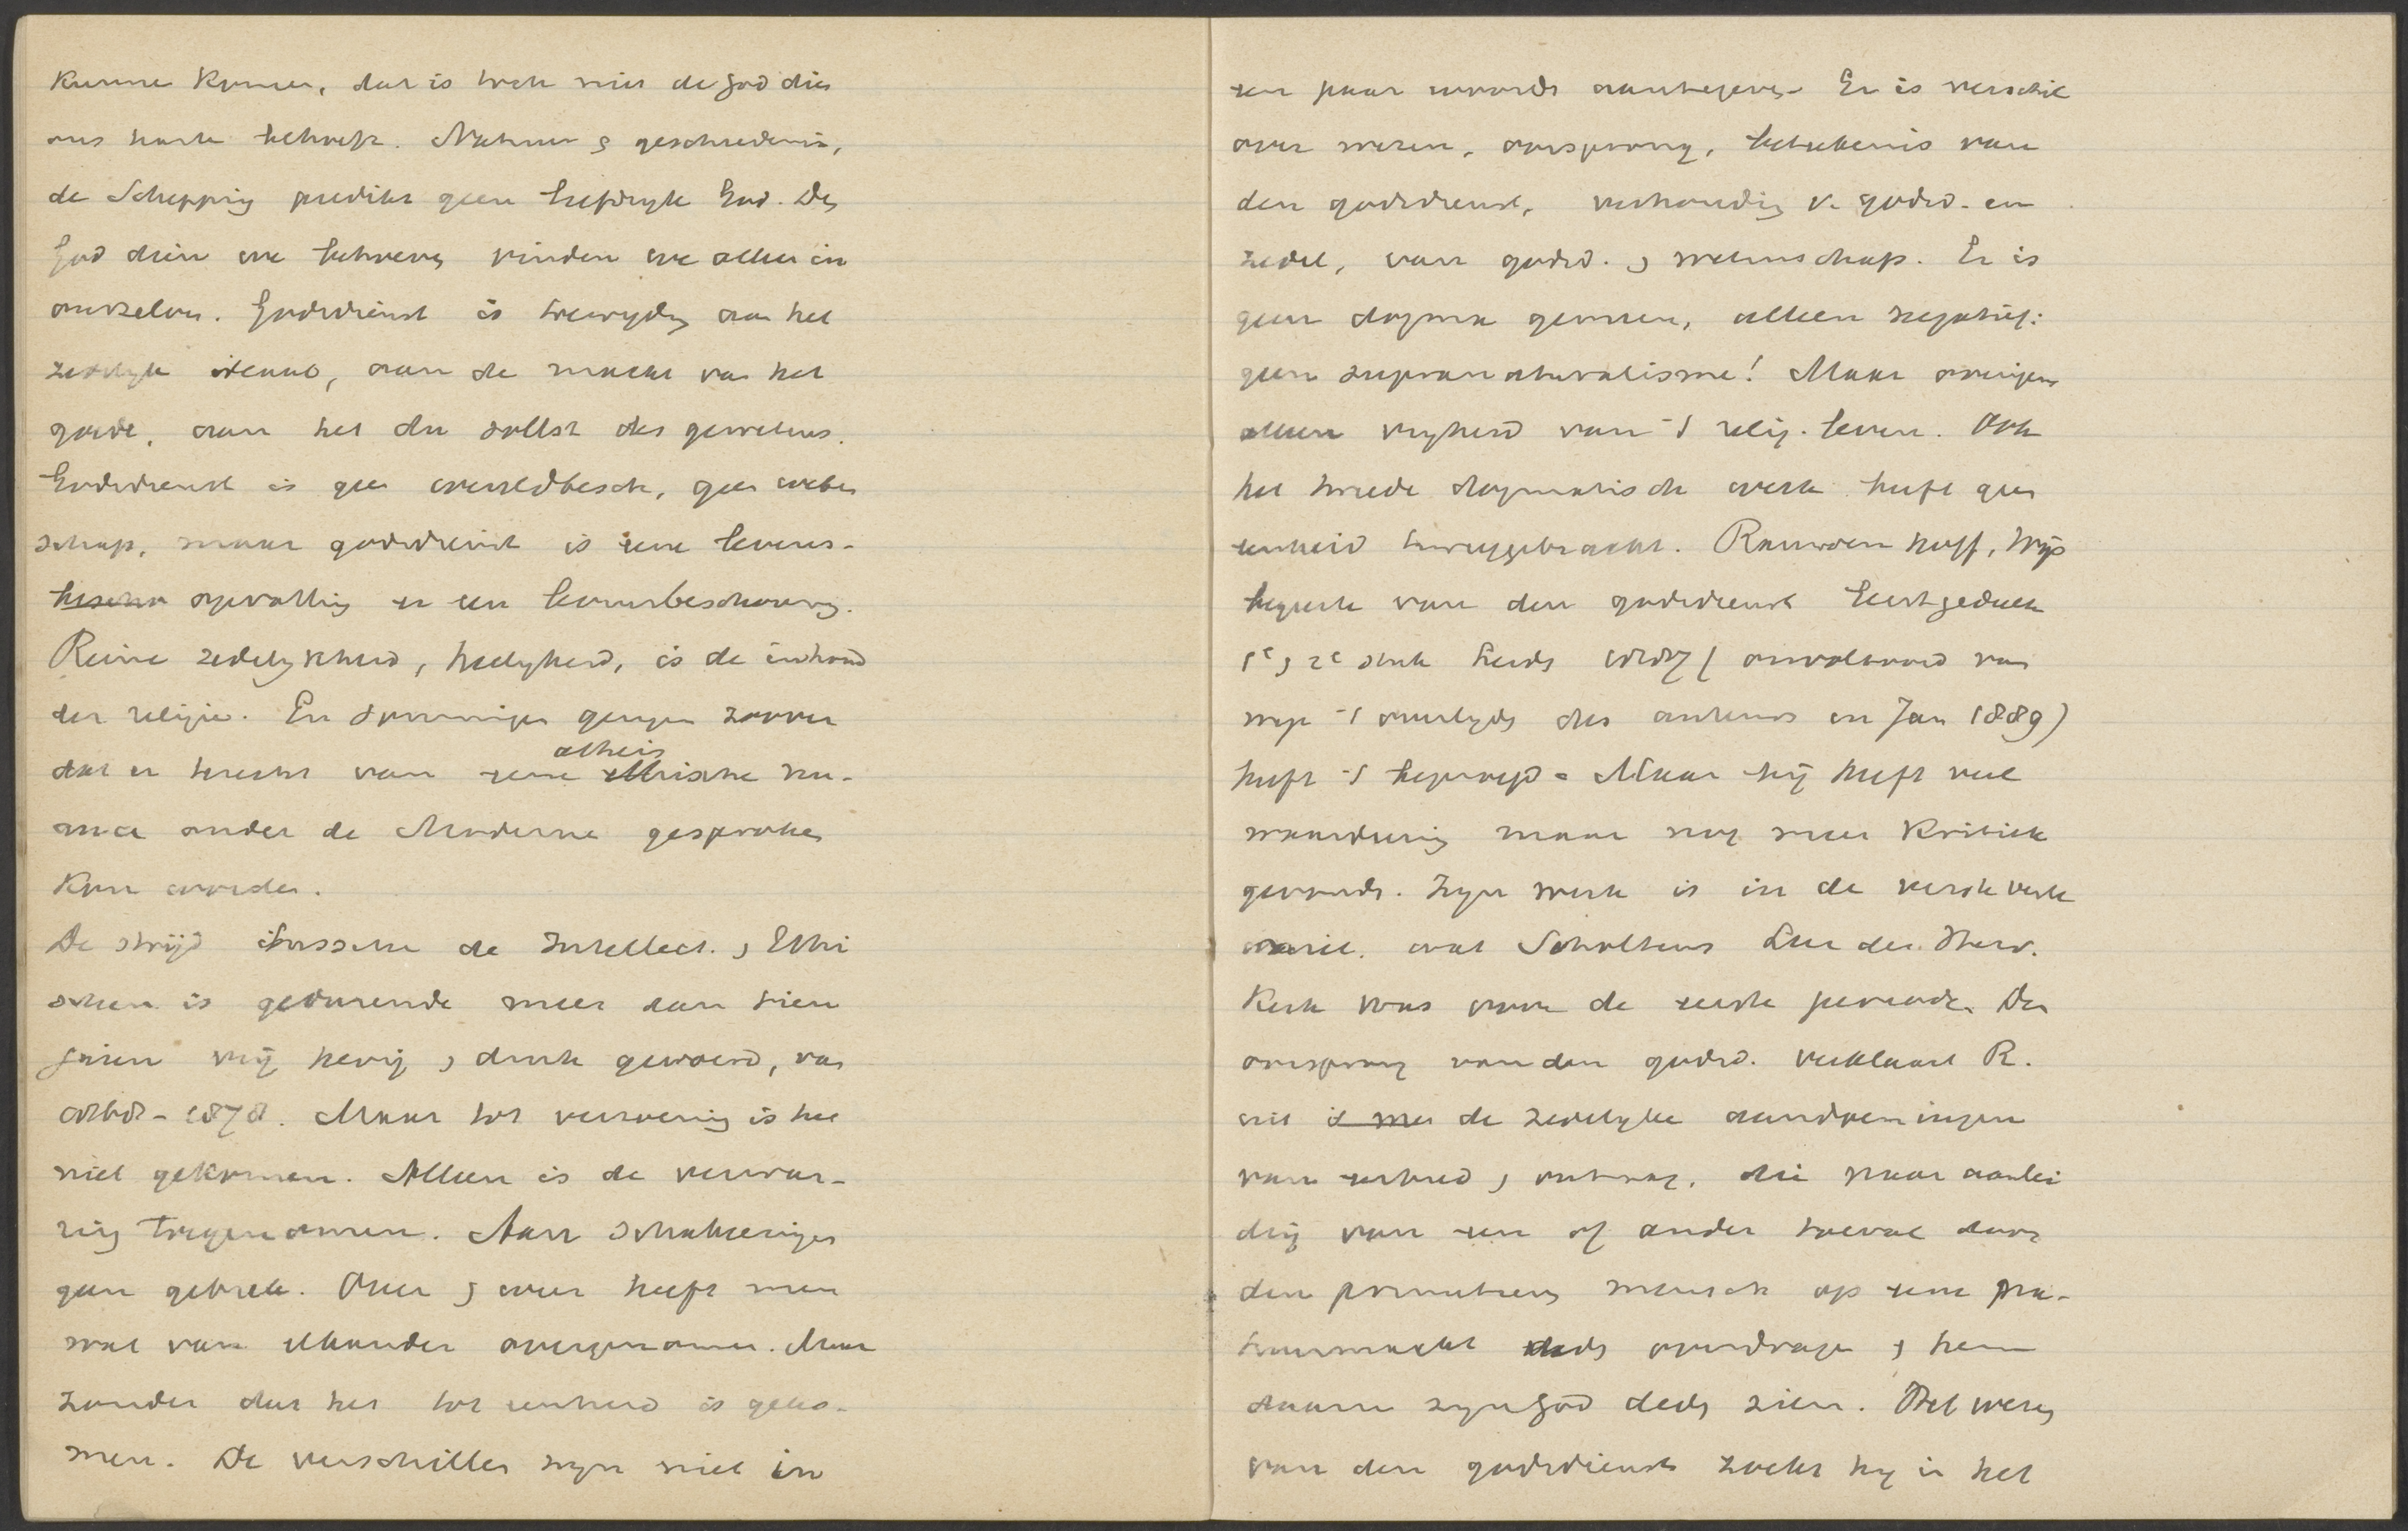 kunne komen, dat is toch niet de God dien
ons harte behoeft. Natuur & geschiedenis,
de Schepping predikt geen liefdryke God. Den
God dien we behoeven vinden we alleen in
onszelven. Godsdienst is toewyding aan het
zedelyk ideaal, aan de macht van het
goede, aan het du sollst des gewetens.
Godsdienst is geen wereldbesch, geen weten
schap, maar godsdienst is eene levens-
opvatting en een levensbeschouwing.
Reine zedelykheid, heilgheid, is de inhoud
der religie. En sommigen gingen zoover
dat er terecht van eene atheistische nu-
ance onder de Moderne gesproken
kon worden.
De strijd tusschen de Intellect. & Ethi
schen is gedurende meer dan tien
jaren vrij hevig & druk gevoerd, van
1868-1878. Maar tot verzoening is het
niet gekomen. Alleen is de verwar-
ring toegenomen. Aan schakeringen
geen gebrek. Over & weer heeft men
wat van elkander overgenomen. Maar
zonder dat het tot eenheid is geko-
men. De verschillen zyn niet in
een paar woorden aantegeven. Er is verschil
over wezen, oorsprong, beteekenis van
den godsdienst, verhouding v. godsd. en
zedel, van godsd. & wetenschap. Er is
geen dogma gemeen, alleen negatief:
geen supranaturalisme! Maar overigens
alleen vryheid van 't relig. leven. Ook
het tweede dogmatisch werk heeft geen
eenheid teweeggebracht. Rauwenhoff, Wijs
begeerte van den godsdienst Eerste gedeelte
1e & 2e stuk Leiden 1887 (onvoltooid van
wege 't overlyden des auteurs in Jan 1889)
heeft 't beproefd. Maar hij heeft veel
waardeering maar nog meer kritiek
gevonden. Zyn werk is in de verste verte
niet. wat Scholtens Leer der Herv.
Kerk was voor de eerste periode. Den
oorsprong van den godsd. verklaart R.
uit de zedelyke aandoeningen
van eerbied & ontzag, die naar aanlei
ding van een of ander toeval door
den primitieven mensch op eene na-
tuurmacht werden overdragen & hem
daarin zyn god deden zien. Het wezen
van den godsdienst zoekt hy in het